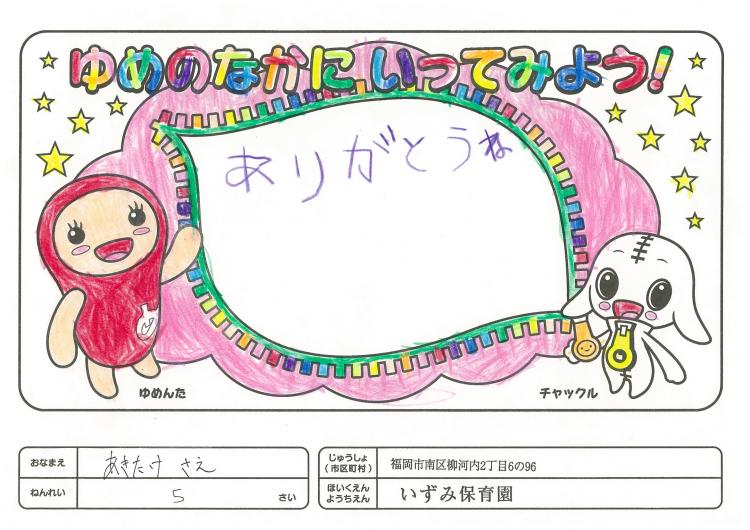 ゆめのなかにいってみよう!
ありがとうね
ゆめんた
チャックル
おなまえ
あきたけ さえ
ねんれい
5 さい
じゅうしょ
(市区町村)
福岡市南区柳河内2丁目6の96
ほいくえん
ようちえん
いずみ保育園